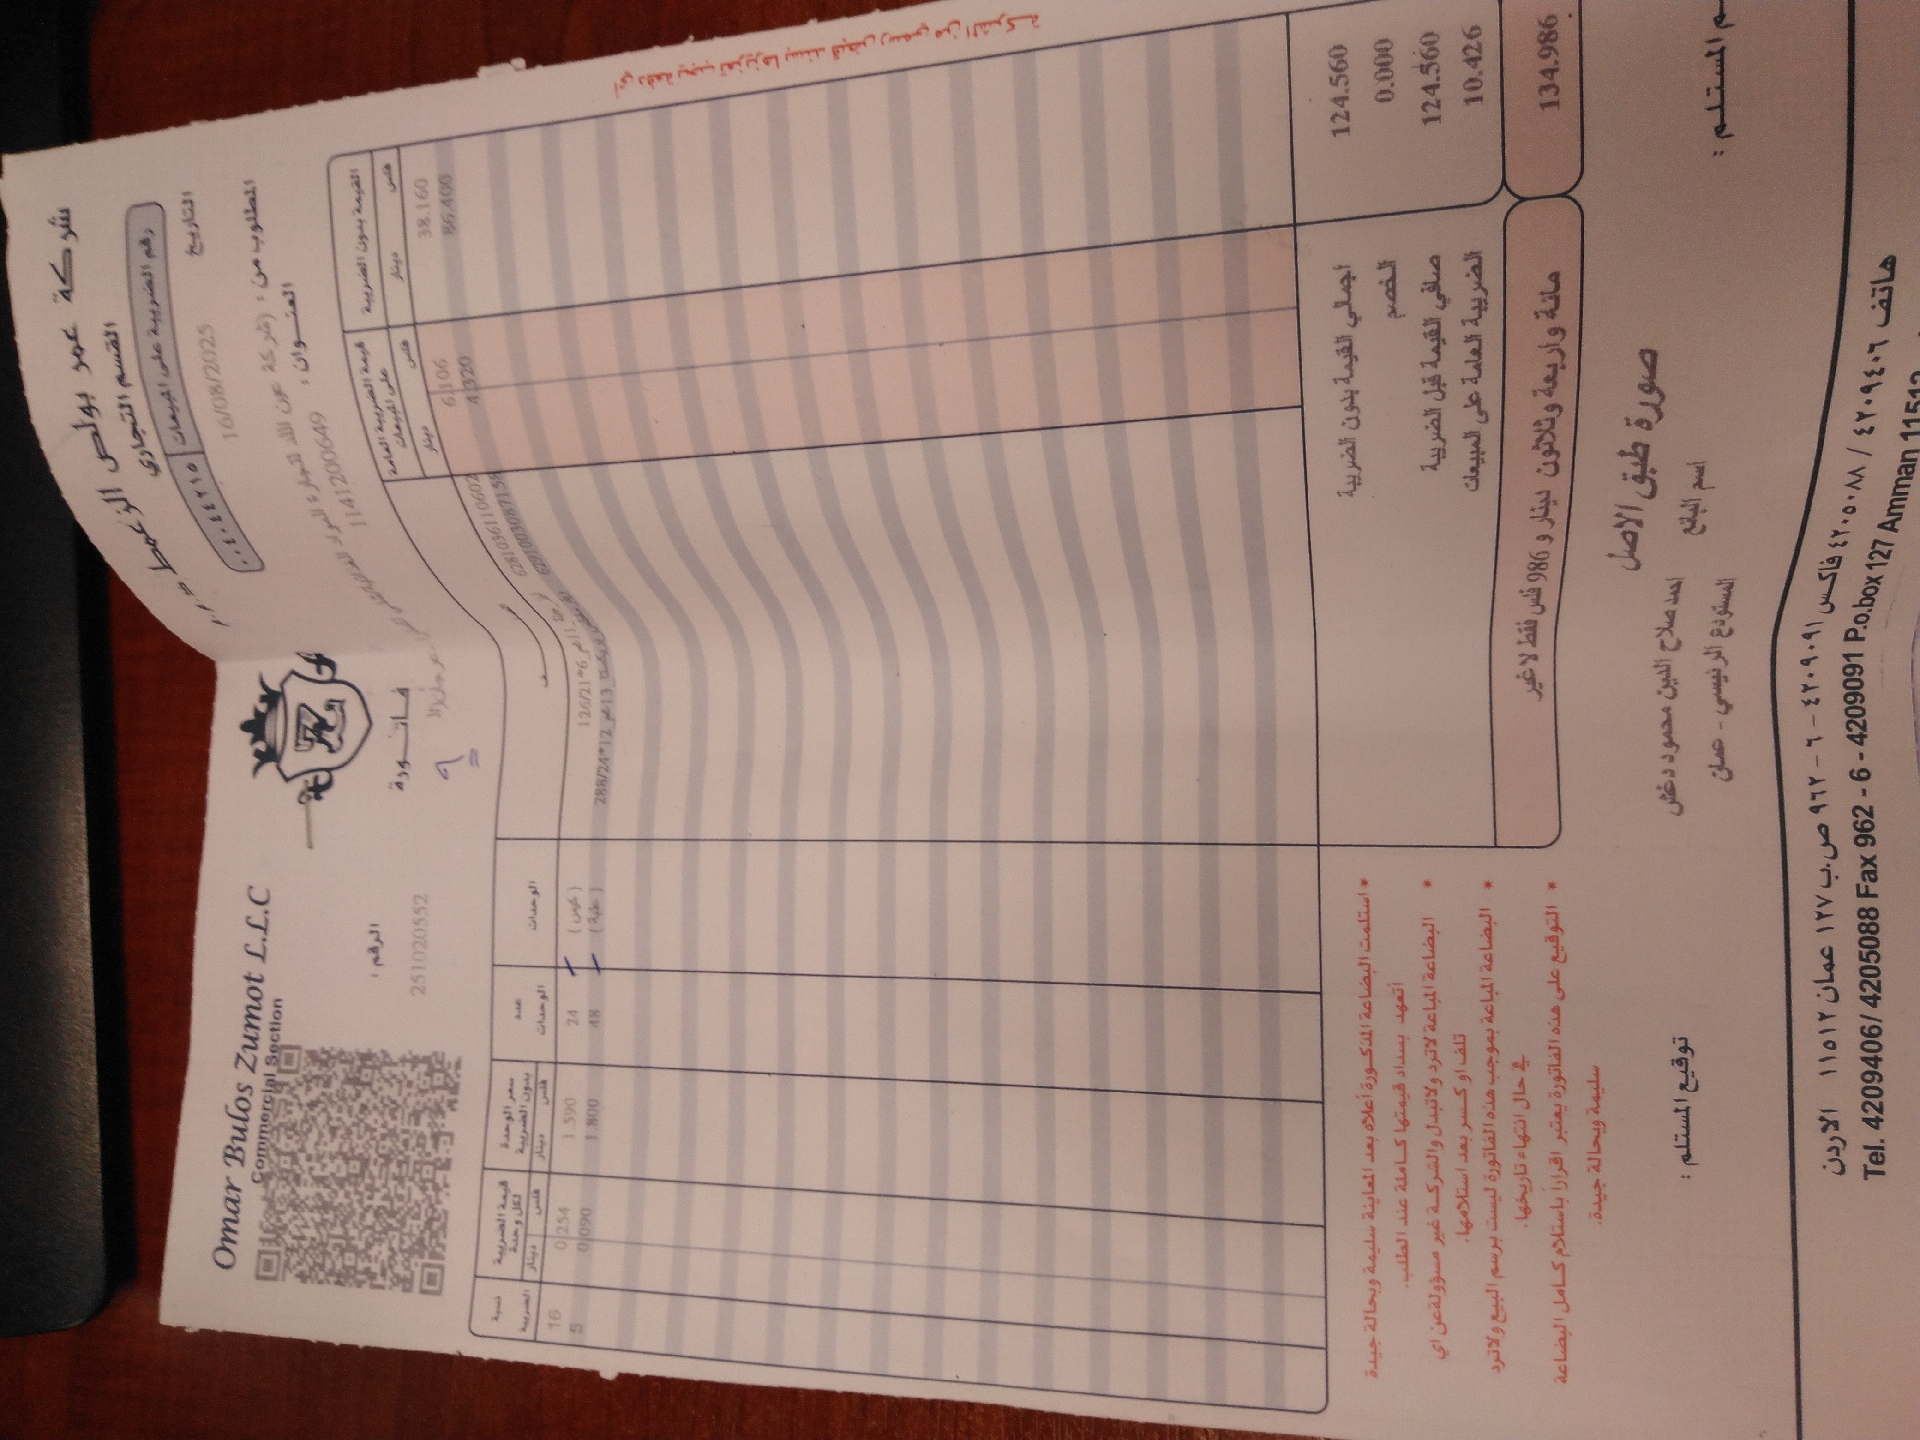 Omar Bulos Zumot L.L.C
Commercial Section
شركة عمر بولص الزعمط
القسم التجاري
رقم الضريبة على المبيعات
٠٠٤٠٤٤٢١٥
التاريخ
16/08/2025
فاتورة
الرقم :
2510205​52
المطلوب من :
العنوان :
11412​00649
القيمة بدون الضريبة
دينار فلس
قيمة الضريبة العامة على المبيعات
دينار فلس
الوحدات
عدد الوحدات
سعر الوحدة بدون الضريبة
دينار فلس
قيمة الضريبة لكل وحدة
دينار فلس
نسبة الضريبة
38.160 6.106 6281036110602 126/21*6 24 1.590 0.254 16
86.400 4.320 288/24*12 48 1.800 0.090 5
اجمالي القيمة بدون الضريبة 124.560
الخصم 0.000
صافي القيمة قبل الضريبة 124.560
الضريبة العامة على المبيعات 10.426
مائة واربعة وثلاثون دينار و 986 فلس فقط لا غير 134.986
* استلمت البضاعة المذكورة أعلاه بعد المعاينة سليمة وبحالة جيدة
أتعهد بسداد قيمتها كاملة عند الطلب.
* البضاعة المباعة لا ترد ولا تبدل والشركة غير مسؤولة عن اي
تلف او كسر بعد استلامها.
* البضاعة المباعة بموجب هذه الفاتورة ليست برسم البيع ولا ترد
في حال انتهاء تاريخها.
* التوقيع على هذه الفاتورة يعتبر اقرارا باستلام كامل البضاعة
سليمة وبحالة جيدة.
أي دفعة يجب تعزيزها بسند قبض رسمي من الشركة
صورة طبق الاصل
اسم البائع
احمد صلاح الدين محمود دغش
المستودع الرئيسي - عمان
م المستلم :
توقيع المستلم :
هاتف ٤٢٠٩٤٠٦ / ٤٢٠٥٠٨٨ فاكس ٤٢٠٩٠٩١ - ٦ - ٩٦٢ ص.ب ١٢٧ عمان ١١٥١٢ الاردن
Tel. 4209406/ 4205088 Fax 962 - 6 - 4209091 P.o.box 127 Amman 11512